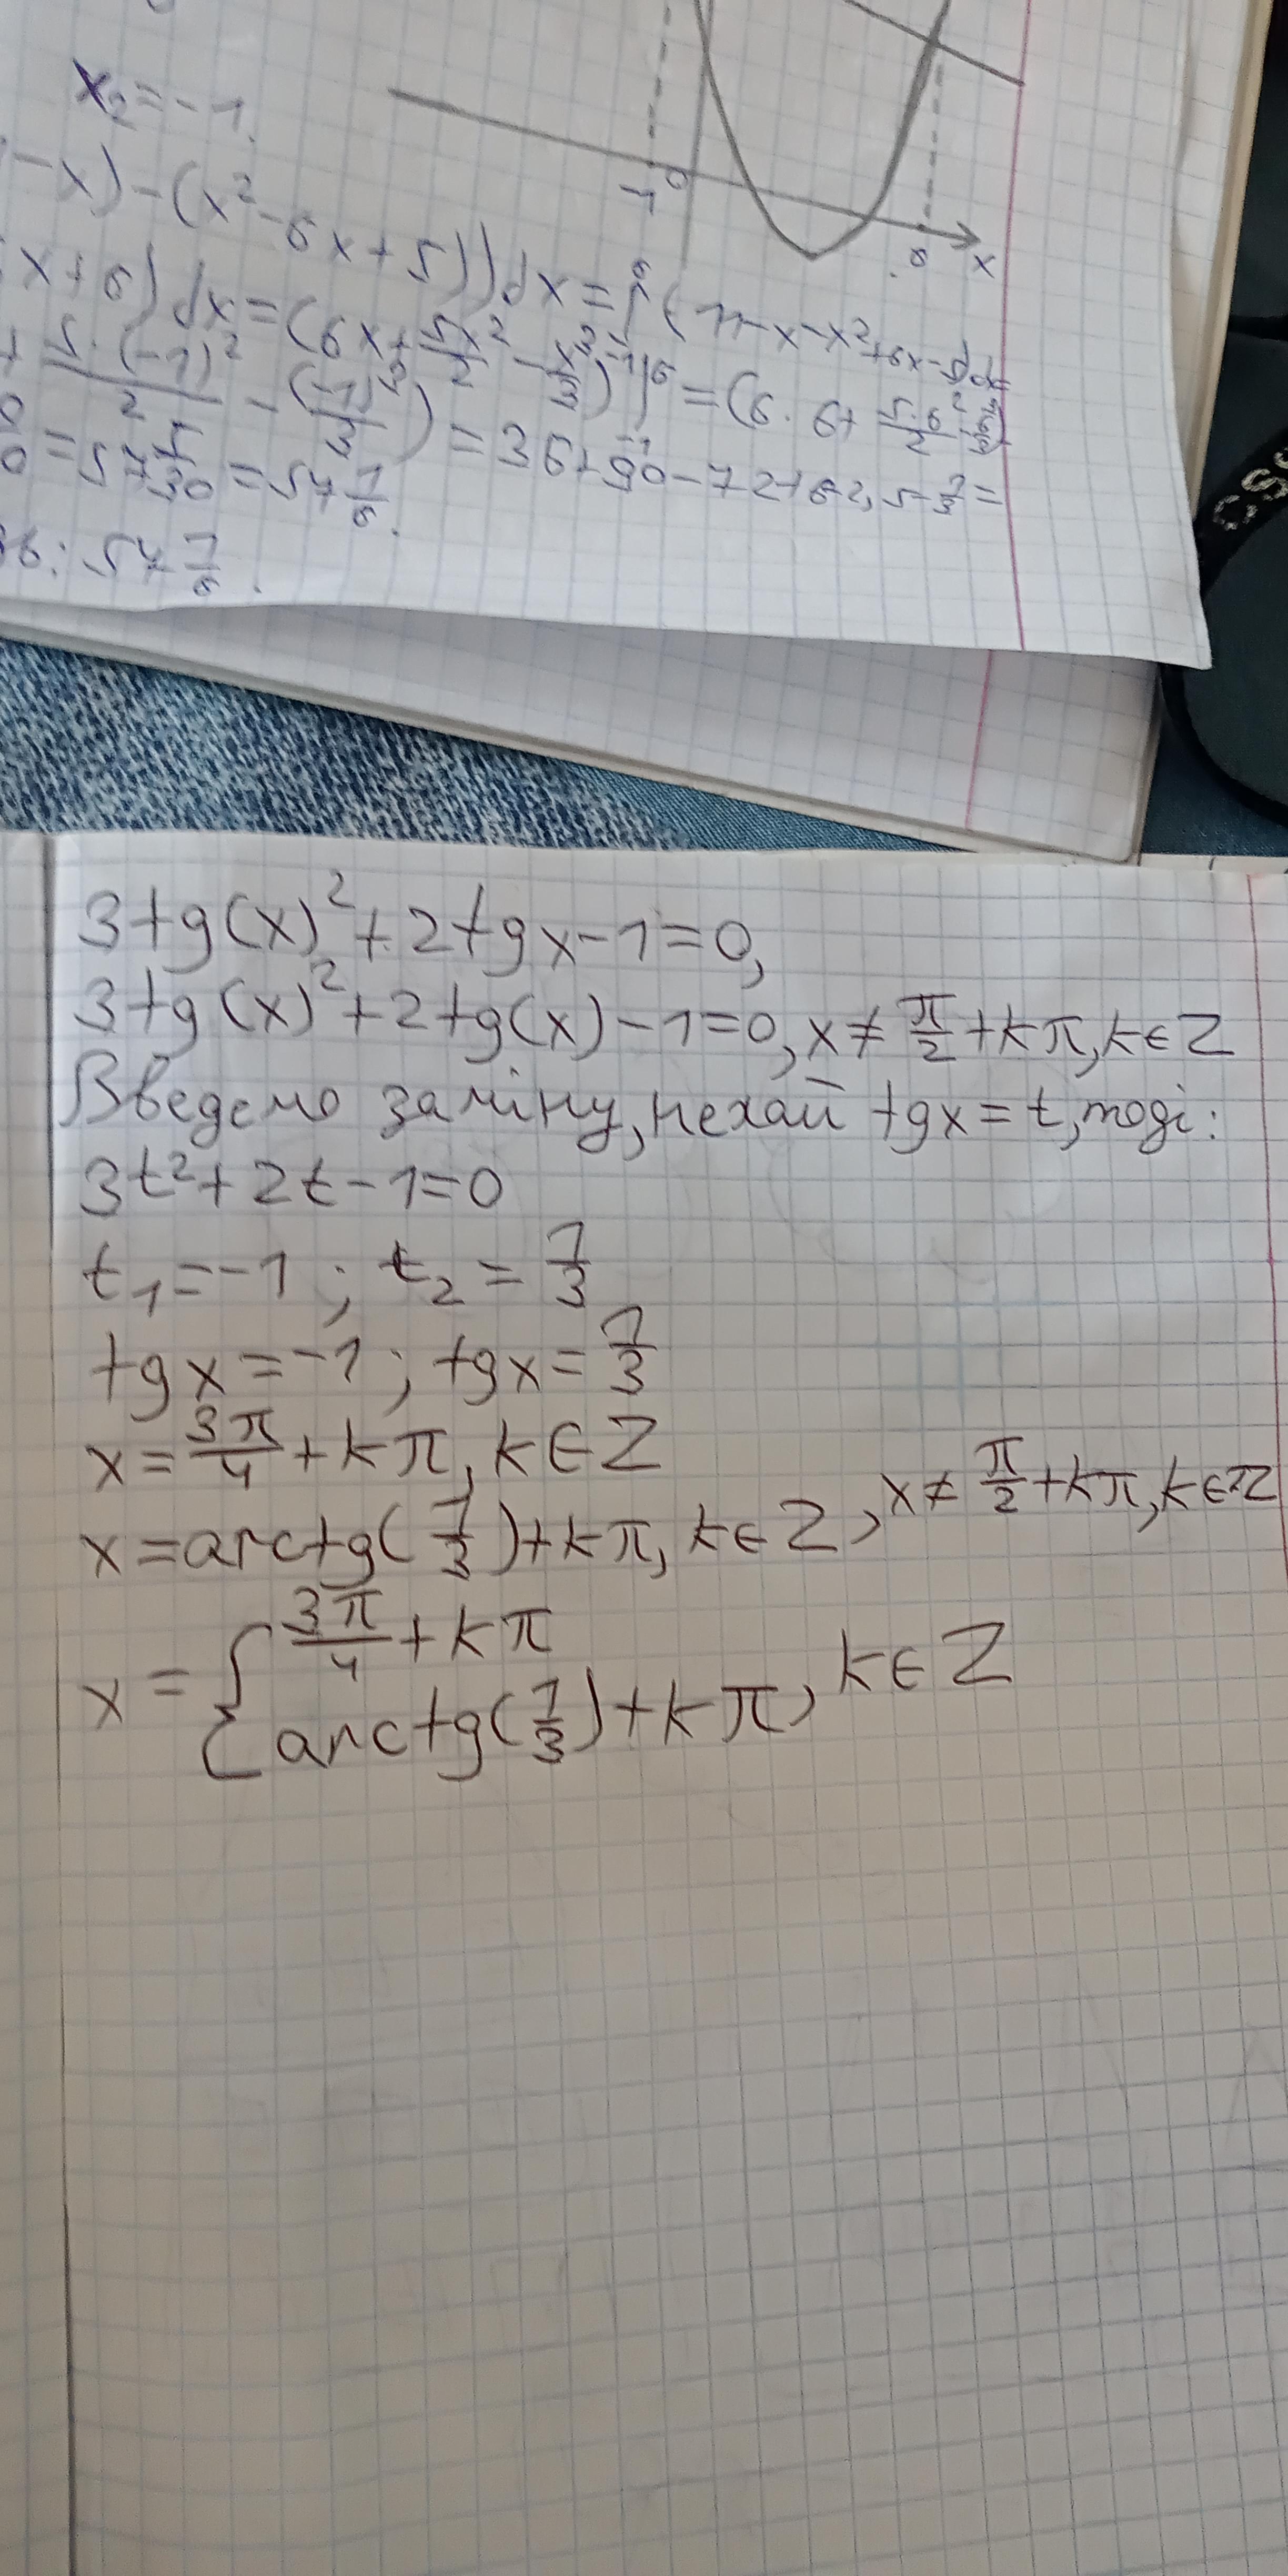 x₂=-1.
-x)-(x²-6x+5))dx=∫(11-x-x²+6x-5)dx
x+6)dx=(6x+5x²/2-x³/3)|⁶₋₁=(6·6+5·6²/2-
5·(-1)²/2-(-1)³/3)=36+90-72+6-2,5-1/3=
0=57 5/30=57 1/6.
57 1/6.
-1 0 6 x
3tg(x)²+2tgx-1=0,
3tg(x)²+2tg(x)-1=0, x≠π/2+kπ, k∈Z
Введемо заміну, нехай tgx=t, тоді:
3t²+2t-1=0
t₁=-1; t₂=1/3
tgx=-1; tgx=1/3
x=3π/4+kπ, k∈Z
x=arctg(1/3)+kπ, k∈Z, x≠π/2+kπ, k∈Z
x={3π/4+kπ
arctg(1/3)+kπ, k∈Z